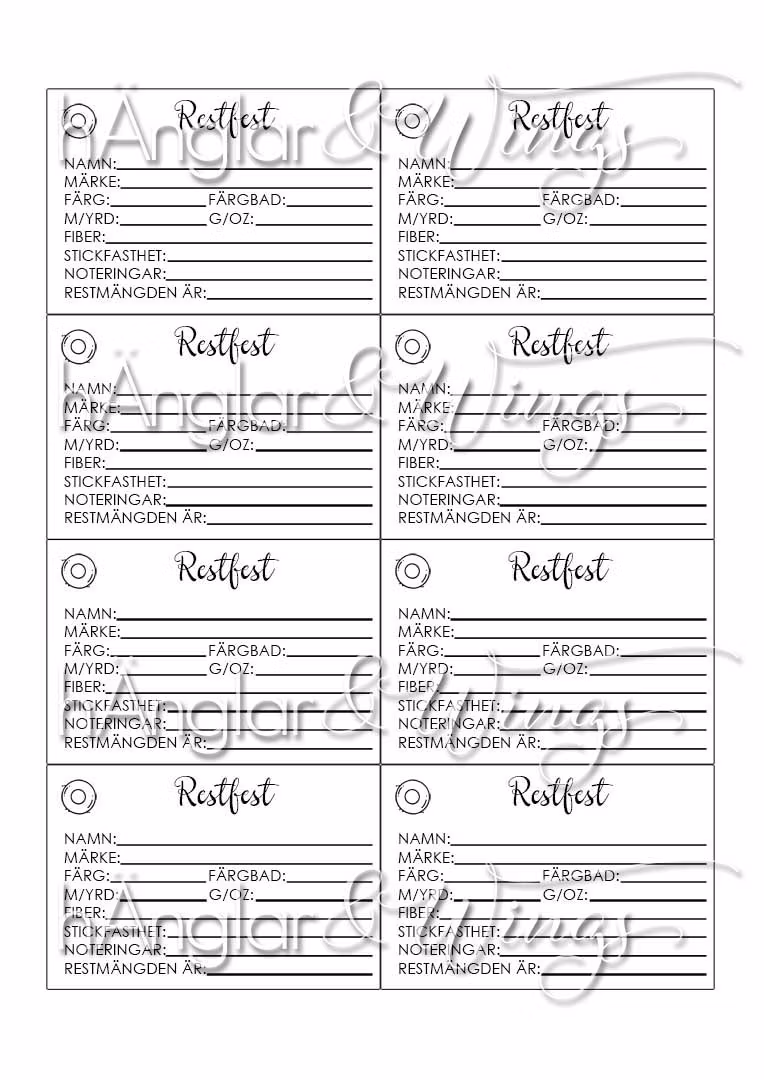 Restfest
NAMN:
MÄRKE:
FÄRG: FÄRGBAD:
M/YRD: G/OZ:
FIBER:
STICKFASTHET:
NOTERINGAR:
RESTMÄNGDEN ÄR:
Restfest
NAMN:
MÄRKE:
FÄRG: FÄRGBAD:
M/YRD: G/OZ:
FIBER:
STICKFASTHET:
NOTERINGAR:
RESTMÄNGDEN ÄR:
hÄnglar & Wings
Restfest
NAMN:
MÄRKE:
FÄRG: FÄRGBAD:
M/YRD: G/OZ:
FIBER:
STICKFASTHET:
NOTERINGAR:
RESTMÄNGDEN ÄR:
Restfest
NAMN:
MÄRKE:
FÄRG: FÄRGBAD:
M/YRD: G/OZ:
FIBER:
STICKFASTHET:
NOTERINGAR:
RESTMÄNGDEN ÄR:
hÄnglar & Wings
Restfest
NAMN:
MÄRKE:
FÄRG: FÄRGBAD:
M/YRD: G/OZ:
FIBER:
STICKFASTHET:
NOTERINGAR:
RESTMÄNGDEN ÄR:
Restfest
NAMN:
MÄRKE:
FÄRG: FÄRGBAD:
M/YRD: G/OZ:
FIBER:
STICKFASTHET:
NOTERINGAR:
RESTMÄNGDEN ÄR:
hÄnglar & Wings
Restfest
NAMN:
MÄRKE:
FÄRG: FÄRGBAD:
M/YRD: G/OZ:
FIBER:
STICKFASTHET:
NOTERINGAR:
RESTMÄNGDEN ÄR:
Restfest
NAMN:
MÄRKE:
FÄRG: FÄRGBAD:
M/YRD: G/OZ:
FIBER:
STICKFASTHET:
NOTERINGAR:
RESTMÄNGDEN ÄR:
hÄnglar & Wings